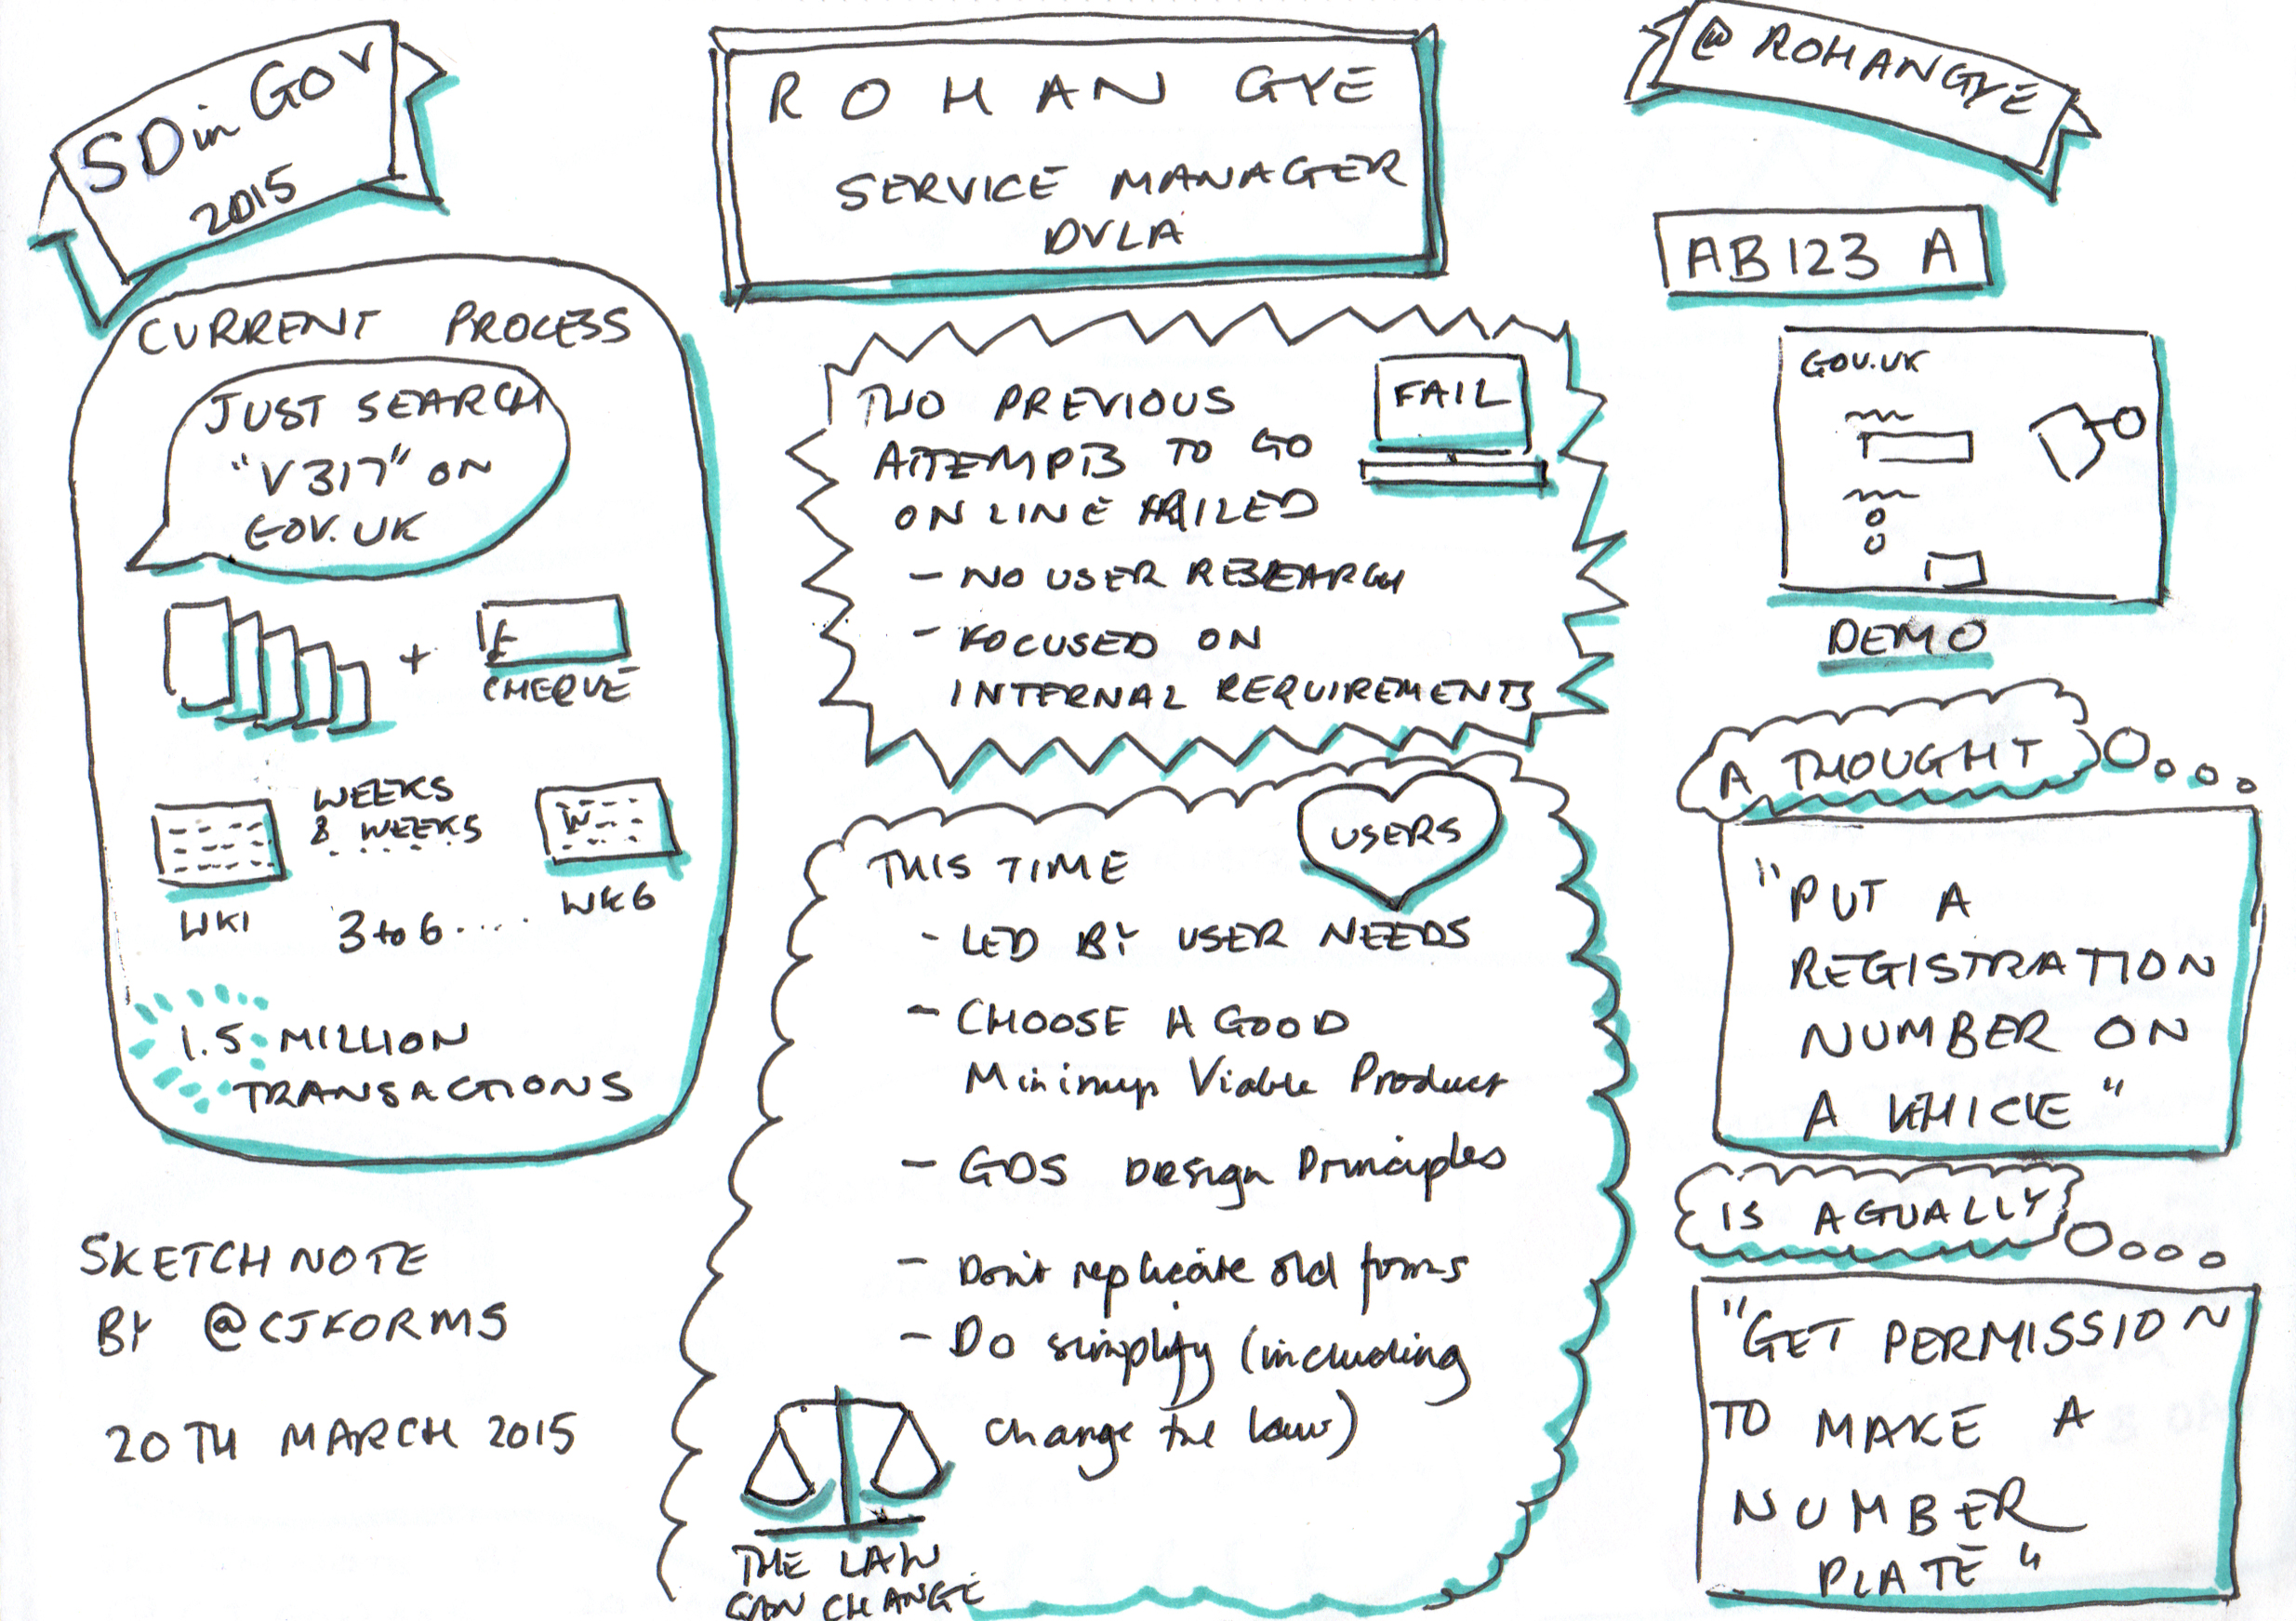 SD in GOV
2015
ROHAN GYE
SERVICE MANAGER
DVLA
@ROHANGYE
CURRENT PROCESS
JUST SEARCH
"V317" ON
GOV.UK
+
£
CHEQUE
WEEKS
& WEEKS
.......
W
WK1
3 to 6 ....
WK6
1.5 MILLION
TRANSACTIONS
SKETCHNOTE
BY @CJFORMS
20TH MARCH 2015
TWO PREVIOUS
ATTEMPTS TO GO
ONLINE FAILED
- NO USER RESEARCH
- FOCUSED ON
INTERNAL REQUIREMENTS
FAIL
THIS TIME
USERS
- LED BY USER NEEDS
- CHOOSE A GOOD
Minimum Viable Product
- GDS Design Principles
- Don't replicate old forms
- Do simplify (including
change the law)
THE LAW
CAN CHANGE
AB123 A
GOV.UK
DEMO
A THOUGHT
"PUT A
REGISTRATION
NUMBER ON
A VEHICLE"
IS ACTUALLY
"GET PERMISSION
TO MAKE A
NUMBER
PLATE"